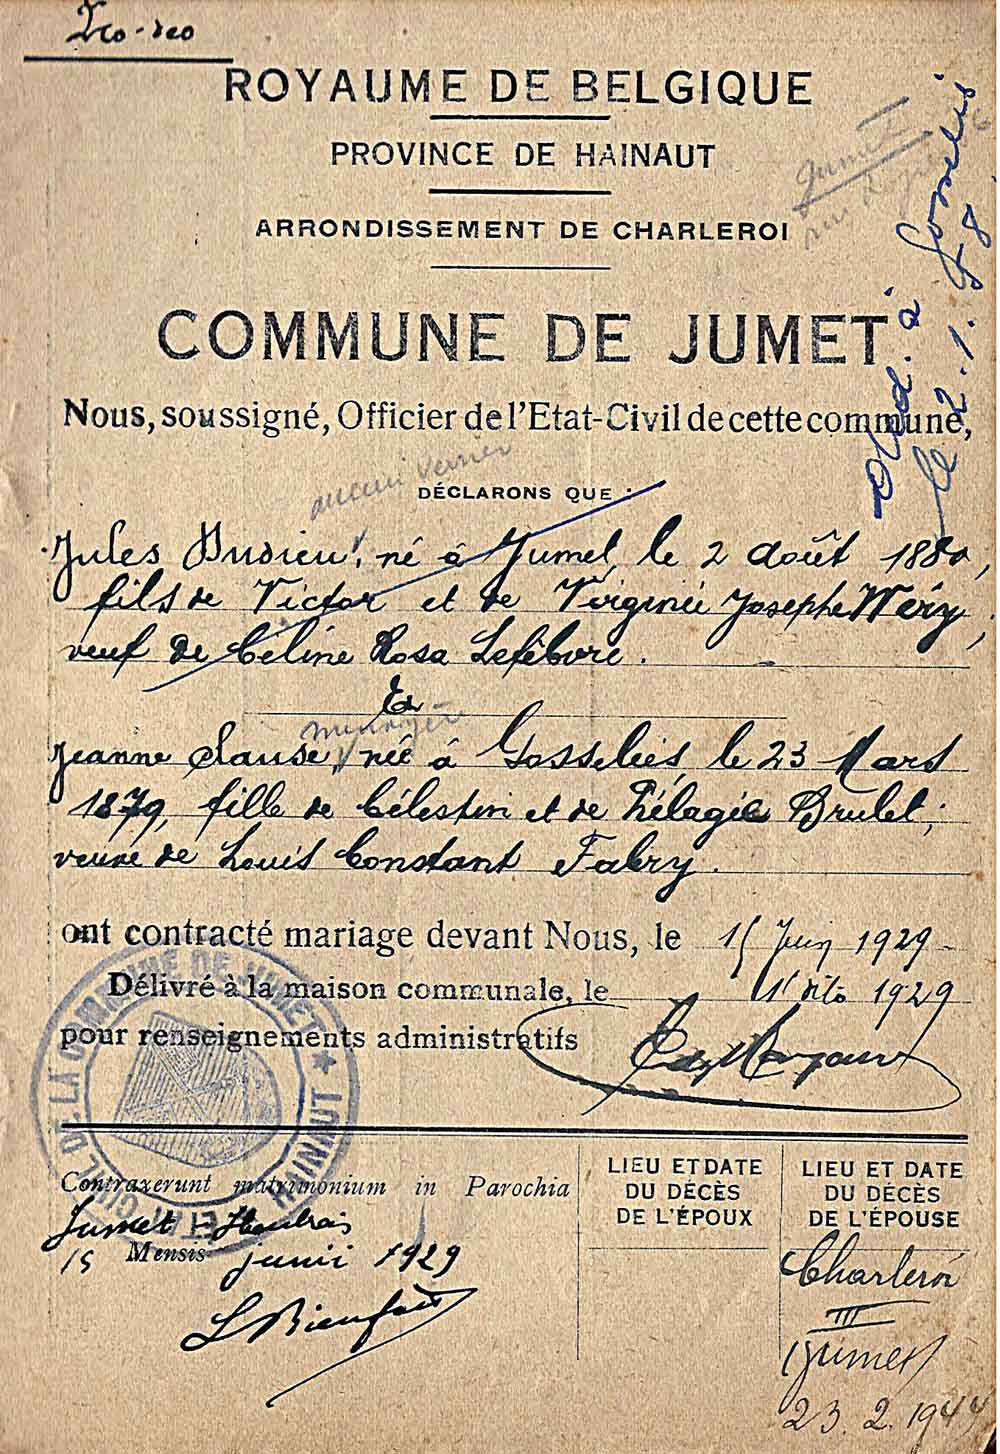 ROYAUME DE BELGIQUE
PROVINCE DE HAINAUT
ARRONDISSEMENT DE CHARLEROI
COMMUNE DE JUMET
Nous, soussigné, Officier de l'Etat-Civil de cette commune,
DÉCLARONS QUE :
Jules né à Jumet, le 2 août 1880,
fils de Victor et de Virginie Josephe Wéry,
veuf de Céline Rosa Lefèbvre.
Et
ménagère
Jeanne Clause, née à Gosselies le 23 Mars
1879, fille de Célestin et de Pélagie Brulet;
veuve de Louis Constant Fabry.
ont contracté mariage devant Nous, le 15 Juin 1929
Délivré à la maison communale, le 1929
pour renseignements administratifs
ETAT CIVIL DE LA COMMUNE DE JUMET ★ HAINAUT
Contraxerunt matrimonium in Parochia
Jumet
15 Mensis junii 1929
LIEU ET DATE
DU DÉCÈS
DE L'ÉPOUX
LIEU ET DATE
DU DÉCÈS
DE L'ÉPOUSE
Charleroi
III
Jumet
23.2.1944
à Gosselies
le 2.1.58
Jumet